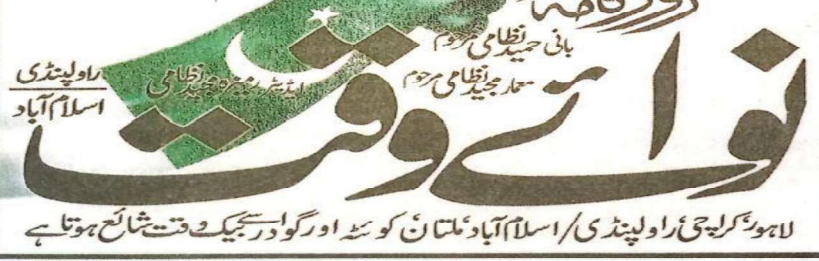 روزنامہ
نوائے وقت
بانی حمید نظامی مرحوم
معمار مجید نظامی مرحوم
ایڈیٹر رمیزہ مجید نظامی
راولپنڈی
اسلام آباد
لاہور، کراچی، راولپنڈی/اسلام آباد، ملتان، کوئٹہ اور گوادر سے بیک وقت شائع ہوتا ہے